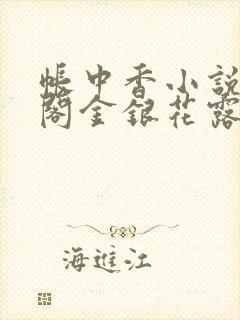 帳中香小説
閣金銀花露
海進江